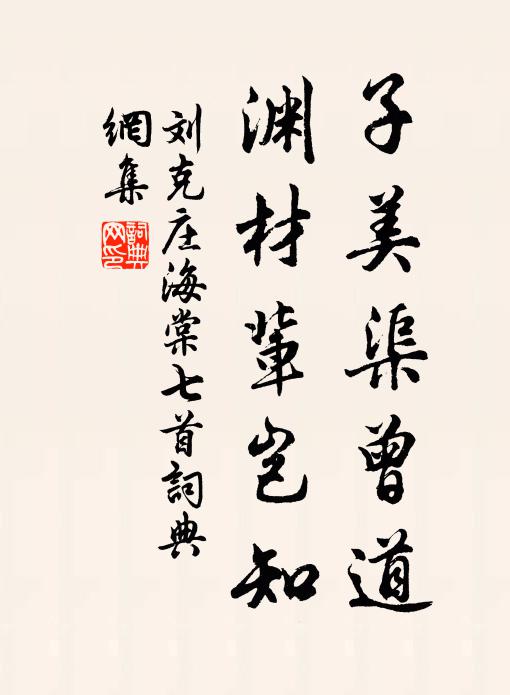 子美渠曾道
渊材辈岂知
刘克庄海棠七首詞典
網集
詞典
网印